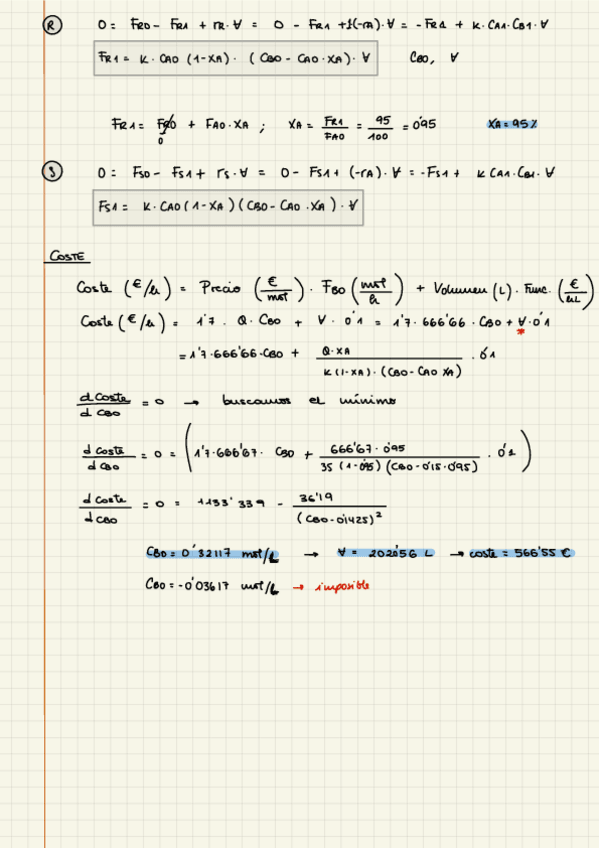 R 0 = FR0 - FR1 + rR·∀ = 0 - FR1 + 1(-rA)·∀ = -FR1 + k·CA1·CB1·∀
FR1 = k·CA0 (1-XA)·(CB0 - CA0·XA)·∀ CB0, ∀
FR1 = FR0 + FA0·XA ; XA = FR1/FA0 = 95/100 = 0'95 XA = 95%
0
S 0 = FS0 - FS1 + rS·∀ = 0 - FS1 + (-rA)·∀ = -FS1 + k CA1·CB1·∀
FS1 = k·CA0 (1-XA)(CB0 - CA0·XA)·∀
COSTE
Coste (€/h) = Precio (€/mol)·FB0 (mol/h) + Volumen (L)·Func. (€/hL)
Coste (€/h) = 1'7·Q·CB0 + ∀·0'1 = 1'7·666'66·CB0 + ∀·0'1
= 1'7·666'66·CB0 + Q·XA/k(1-XA)·(CB0 - CA0 XA)·0'1
d Coste/d CB0 = 0 → buscamos el mínimo
d Coste/d CB0 = 0 = (1'7·666'67·CB0 + 666'67·0'95/35 (1-0'95)(CB0-0'15·0'95)·0'1)
d Coste/d CB0 = 0 = 1133'339 - 36'19/(CB0 - 0'1425)²
CB0 = 0'32117 mol/L → ∀ = 2020'56 L → coste = 566'55 €
CB0 = -0'03617 mol/L → imposible